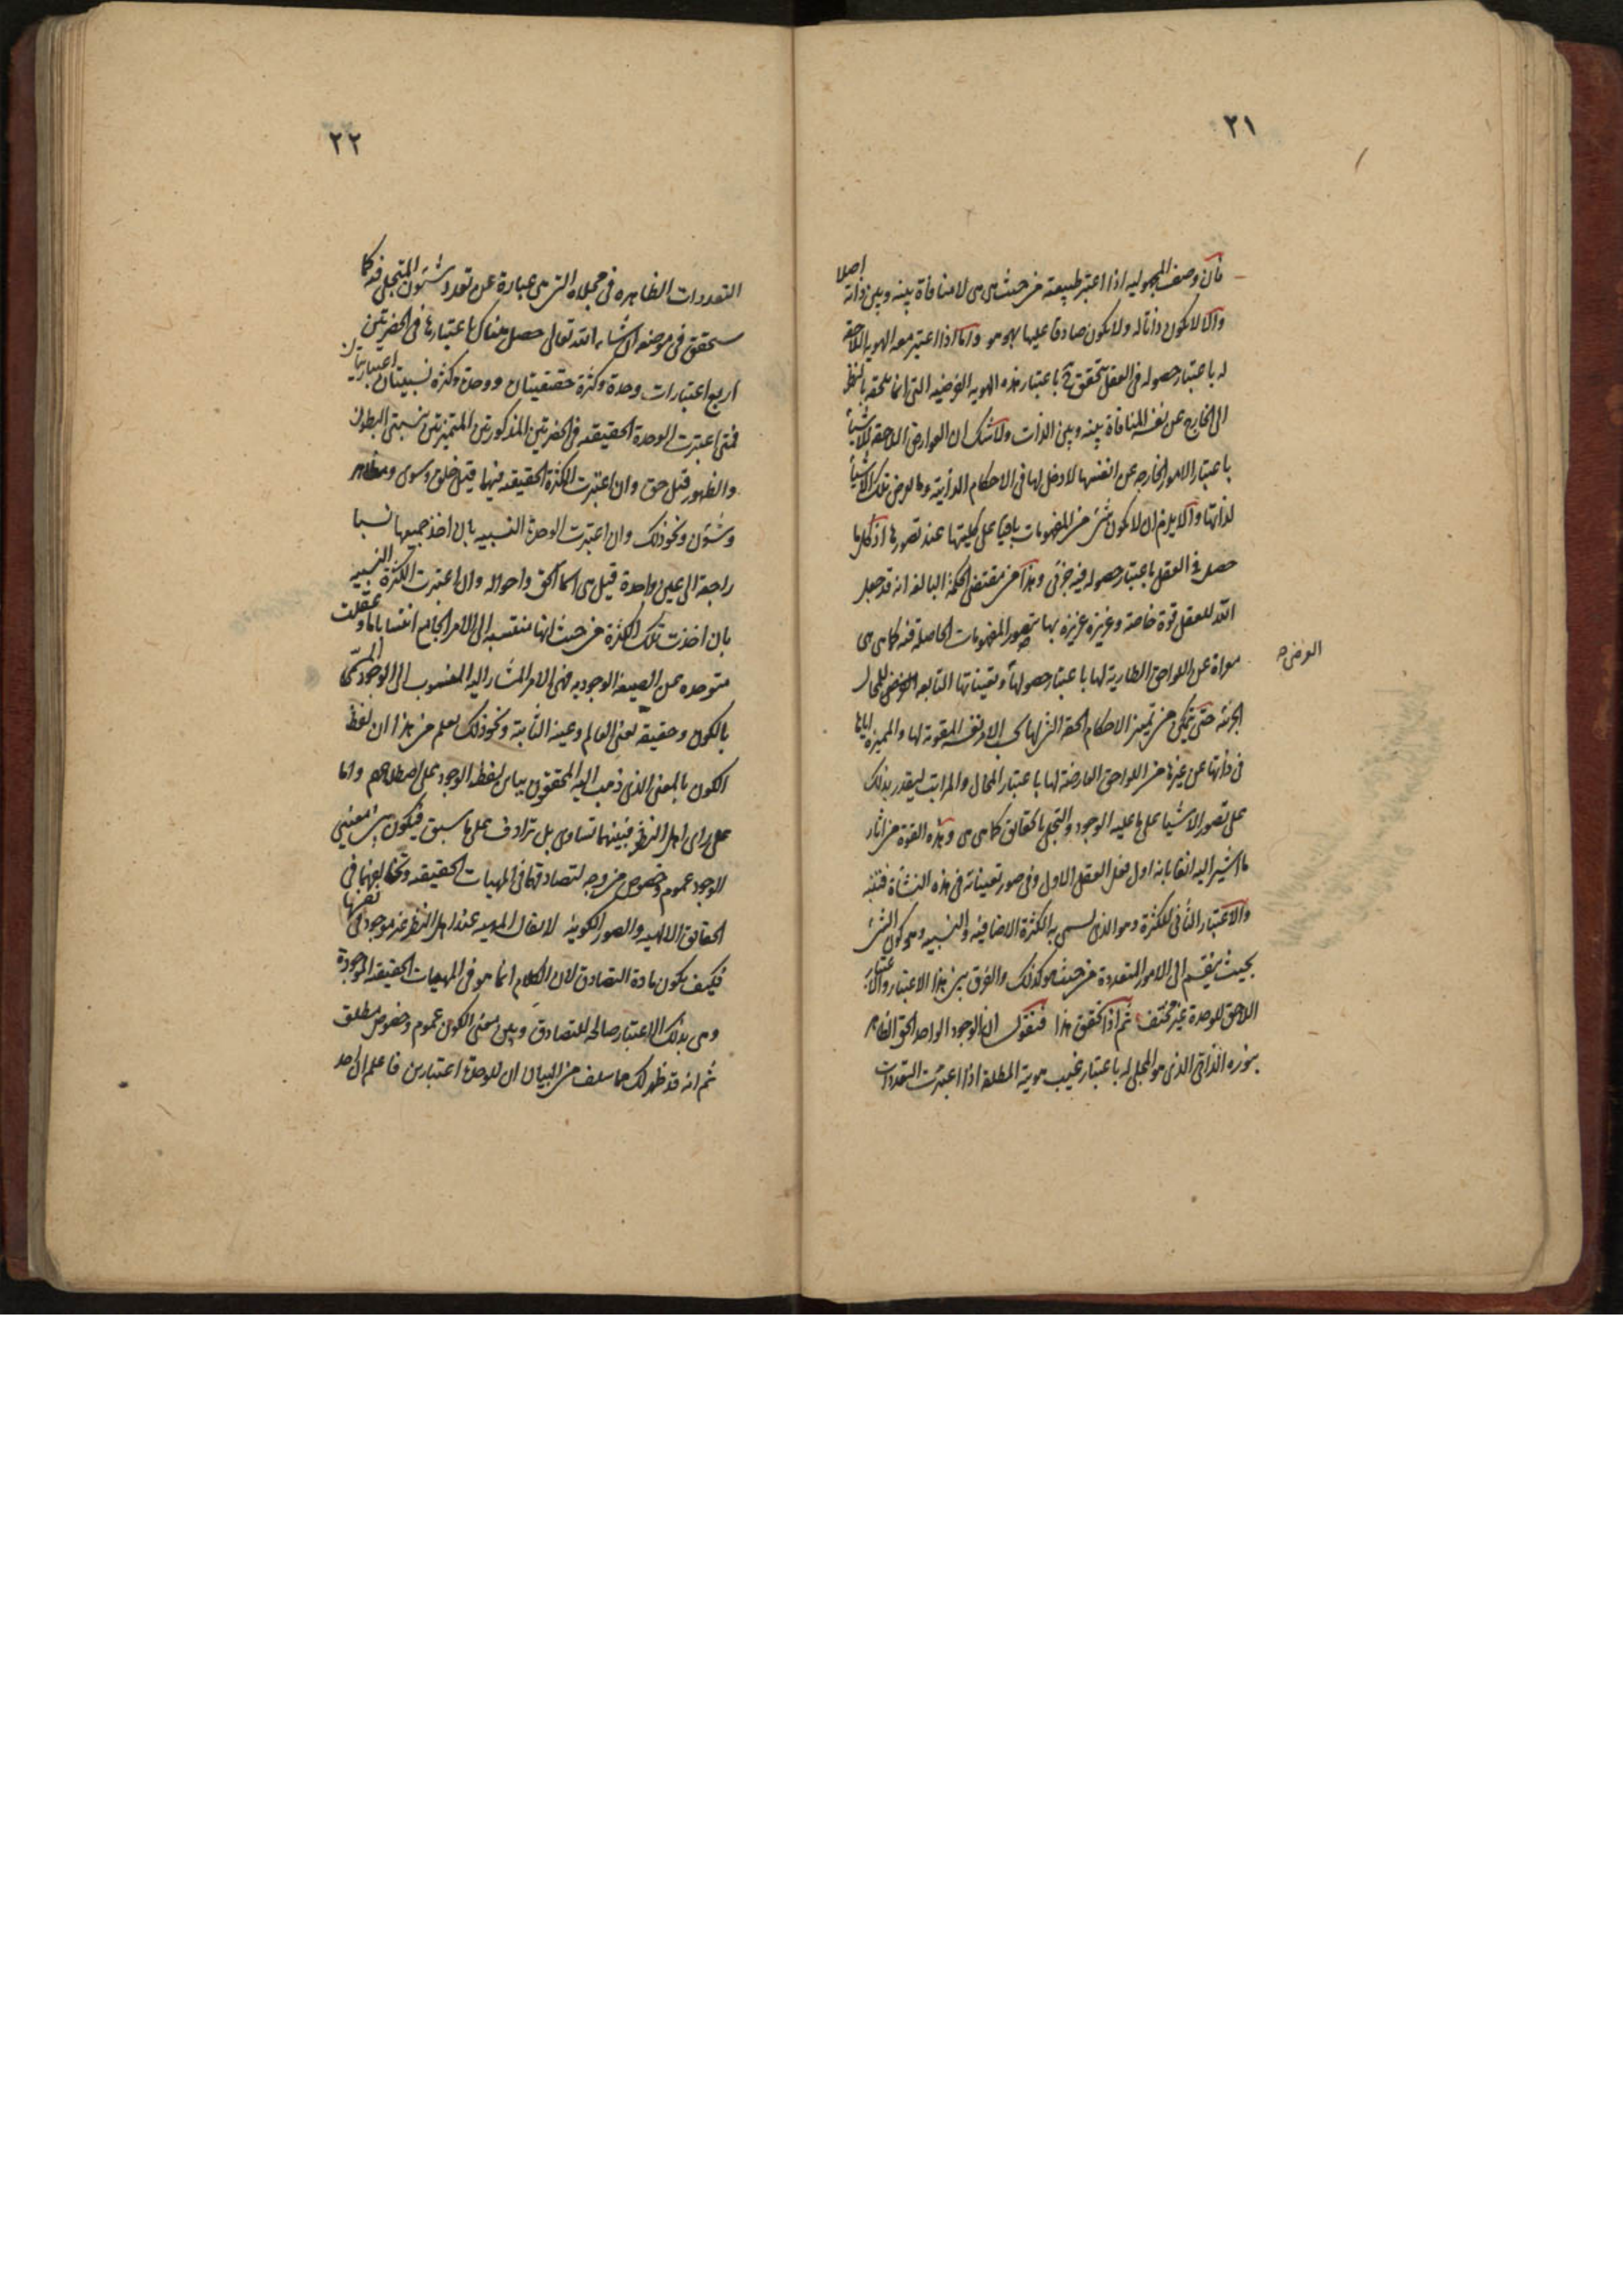 ٢١
فان وصف المجهوليه اذا اعتبر طبيعته من حيث هى هى لا منافاة بينه وبين ذاته اصلا
والا لا يكون ذاتا له ولا يكون صادقا عليها بهو هو واما اذا اعتبر معه الهويه اللاحقة
له باعتبار حصوله فى العقل يتحقق ح باعتبار هذه الهويه العرضيه التى انما تلحقه بالنظر
الى الخارج عن نفسه المنافاة بينه وبين الذات ولا شك ان العوارض اللاحقه للاشيأ
باعتبار الامور الخارجه عن انفسها لا دخل لها فى الاحكام الذاتية وما يعرض تلك الاشيأ
لذاتها والا يلزم ان لا يكون شئ من المفهومات باقيا على كليتها عند تصورها اذ كل ما
حصل فى العقل باعتبار حصوله فيه جزئى وهذا من مقتضى الحكمة البالغه انه قد جعل
الله للعقل قوة خاصة وغريزة عزيزه بها يتصور المفهومات الحاصلة فيه كما هى هى
معراة عن اللواحق الطارية لها باعتبار حصولها وتعيناتها التابعه للمحال
العرضى
الجزئيه حتى يتمكن من تمييز الاحكام الحقه التى لها بحسب الامر نفسه المقومة لها والمميزه اياها
فى ذاتها عن غيرها من اللواحق العارضة لها باعتبار المحال والمراتب ليقدر بذلك
على تصور الاشيا على ما عليه الوجود والتجلى بالحقايق كما هى هى وهذه القوة من اثار
ما اشير اليه انفا بانه اول فعل العقل الاول وفى صور تعيناته فى هذه النشأة فتنبه
والاعتبار الثانى للكثرة وهو الذى يسمى به الكثرة الاضافيه والنسبيه وهو كون الشئ
بحيث ينقسم الى الامور المتعددة من حيث هو كذلك والفرق بين هذا الاعتبار والاعتبار
اللاحق للوحدة غير مختف ثم اذا تحقق هذا فنقول ان الوجود الواحد الحق الظاهر
بنوره الذاتى الذى هو المجلى له باعتبار غيب هويته المطلقه اذا اعتبرت التعددات
٢٢
التعددات الظاهره فى مجلاه التى هى عبارة عن تعدد شئون المتجلى فيه كما
سيحقق فى موضعه ان شاء الله تعالى حصل هناك باعتبارها فى الحضرتين
اربع اعتبارات وحدة وكثرة حقيقيتان ووحدة وكثره نسبيتان اعتباريتان
فمتى اعتبرت الوحدة الحقيقيه فى الحضرتين المذكورتين المتميزتين بنسبتى البطون
والظهور قيل حق وان اعتبرت الكثرة الحقيقيه فيهما قيل خلق وسوى ومظاهر
وشؤن ونحو ذلك وان اعتبرت الوحدة النسبيه بان اخذ جميعها نسبا
راجعة الى عين واحدة قيل هى اسما الحق واحواله وان اعتبرت الكثرة النسبيه
بان اخذت تلك الكثرة من حيث انها منتسبه الى الامر الجامع انتسابا ما وعقلت
متوحده عن الصيغه الوجوديه فهى الامر المشار اليه المنسوب الى الوجود المسمى
بالكون وحقيقه يعنى العالم وعينه الثابتة ونحو ذلك يعلم من هذا ان لفظ
الكون بالمعنى الذى ذهب اليه المحققون يباين لفظه الوجود على اصطلاحهم واما
على راى اهل النظر فبينهما تساوى بل ترادف على ما سبق فيكون بين معنيى
الوجود عموم وخصوص من وجه لتصادقهما فى المهيات الحقيقيه وتخالفهما فى
الحقايق الالهيه والصور الكونية لا يقال المهيه عند اهل النظر غير موجودة فى نفسها
فكيف يكون مادة التصادق لان الكلام انما هو فى المهيات الحقيقيه الموجودة
وهى بذلك الاعتبار صالحه للتصادق وبين معنى الكون عموم وخصوص مطلق
ثم انه قد ظهر لك مما سلف من البيان ان للوحدة اعتبارين فاعلم ان احد